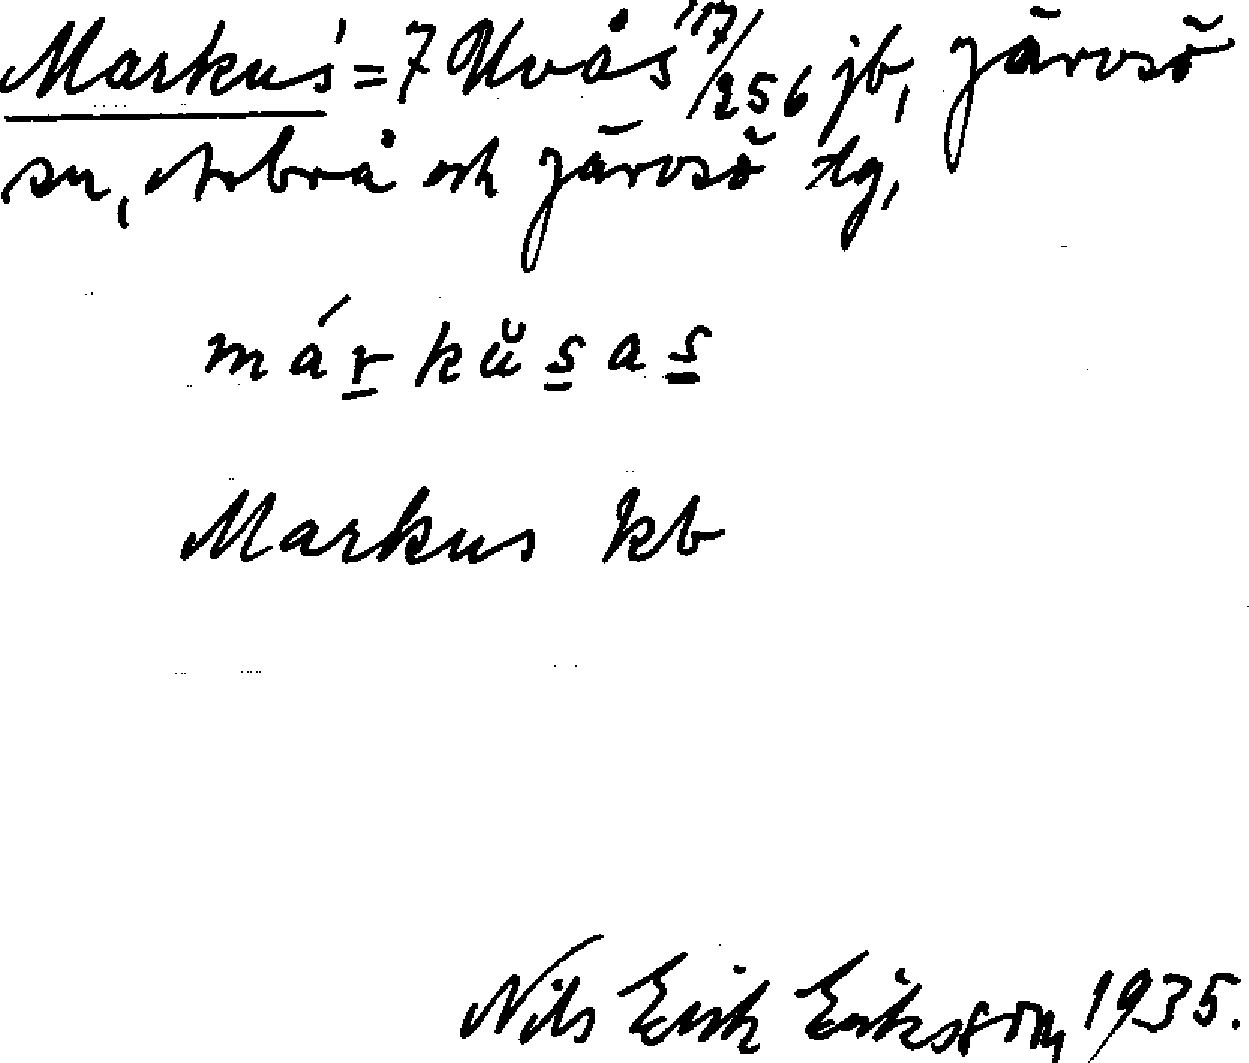 Markus' = 7 Kvås 17/256 jb, Järvsö
sn, Arbrå och Järvsö tg,
márkŭsas
Markus kb
Nils Erik Eriksson, 1935.